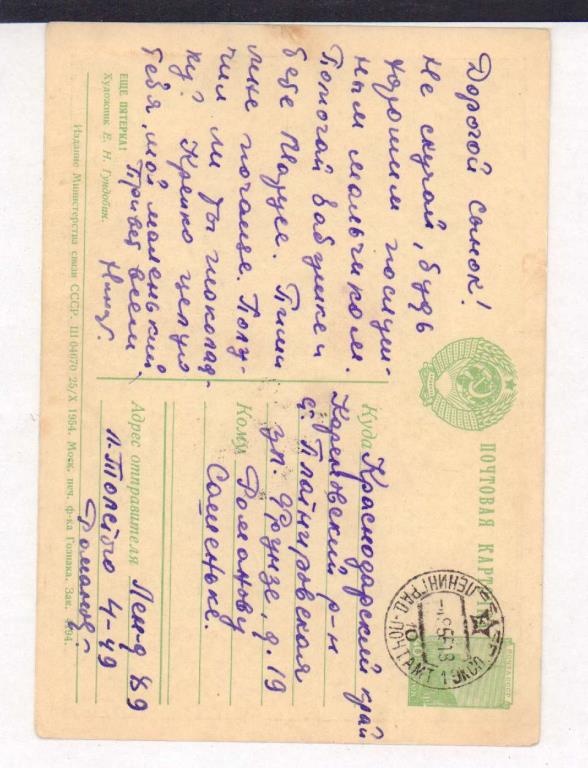 Дорогой сынок!
Не скучай, будь
хорошим послуш-
ным мальчиком.
Помогай бабушке и
бебе Марусе. Пиши
мне почаще. Полу-
чил ли ты шоколад-
ку? Крепко целую
тебя, мой маленький.
Привет всем.
ЕЩЕ ПЯТЕРКА!
Художник Е. Н. Гундобин.
Издание Министерства связи СССР. Ш 04670 25/X 1954. Моск. печ. ф-ка Гознака. Зак.
ПОЧТОВАЯ КАРТОЧКА
Куда Краснодарский край
Кореновский р-н
с. Платнировская
ул. Фрунзе, д. 19
Кому Романову
Сашеньке.
Адрес отправителя Лен-д 49
Романов.
ЛЕНИНГРАД-ПОЧТАМТ
ЭКСП